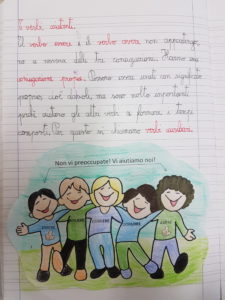 I verbi ausiliari.
Il verbo essere e il verbo avere non appartengono
a nessuna delle tre coniugazioni. Hanno una
coniugazione propria. Possono essere usati con significato
proprio, cioè da soli, ma sono molto importanti
perché aiutano gli altri verbi a formare i tempi
composti. Per questo si chiamano verbi ausiliari.
Non vi preoccupate! Vi aiutiamo noi!
ESSERE
AVERE